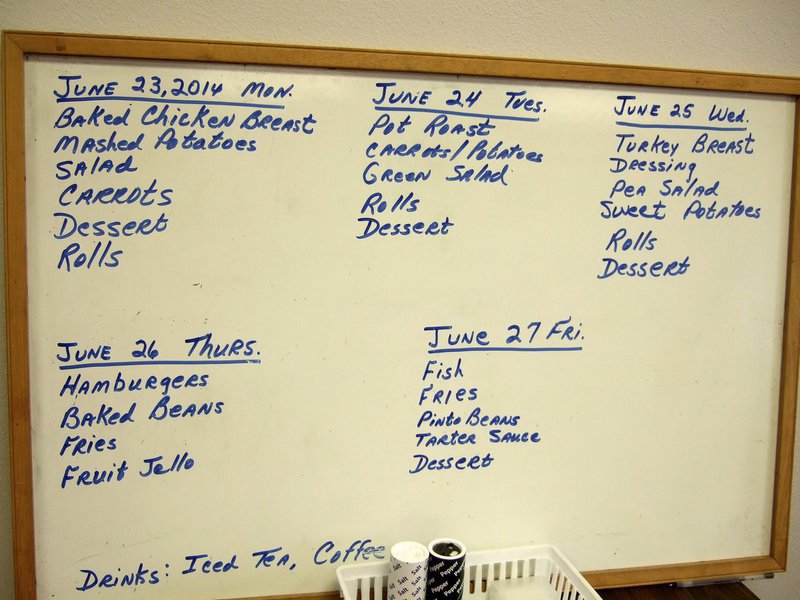 June 23, 2014 Mon.
Baked Chicken Breast
Mashed Potatoes
Salad
Carrots
Dessert
Rolls
June 24 Tues.
Pot Roast
Carrots/Potatoes
Green Salad
Rolls
Dessert
June 25 Wed.
Turkey Breast
Dressing
Pea Salad
Sweet Potatoes
Rolls
Dessert
June 26 Thurs.
Hamburgers
Baked Beans
Fries
Fruit Jello
June 27 Fri.
Fish
Fries
Pinto Beans
Tarter Sauce
Dessert
Drinks: Iced Tea, Coffee
Salt
Pepper